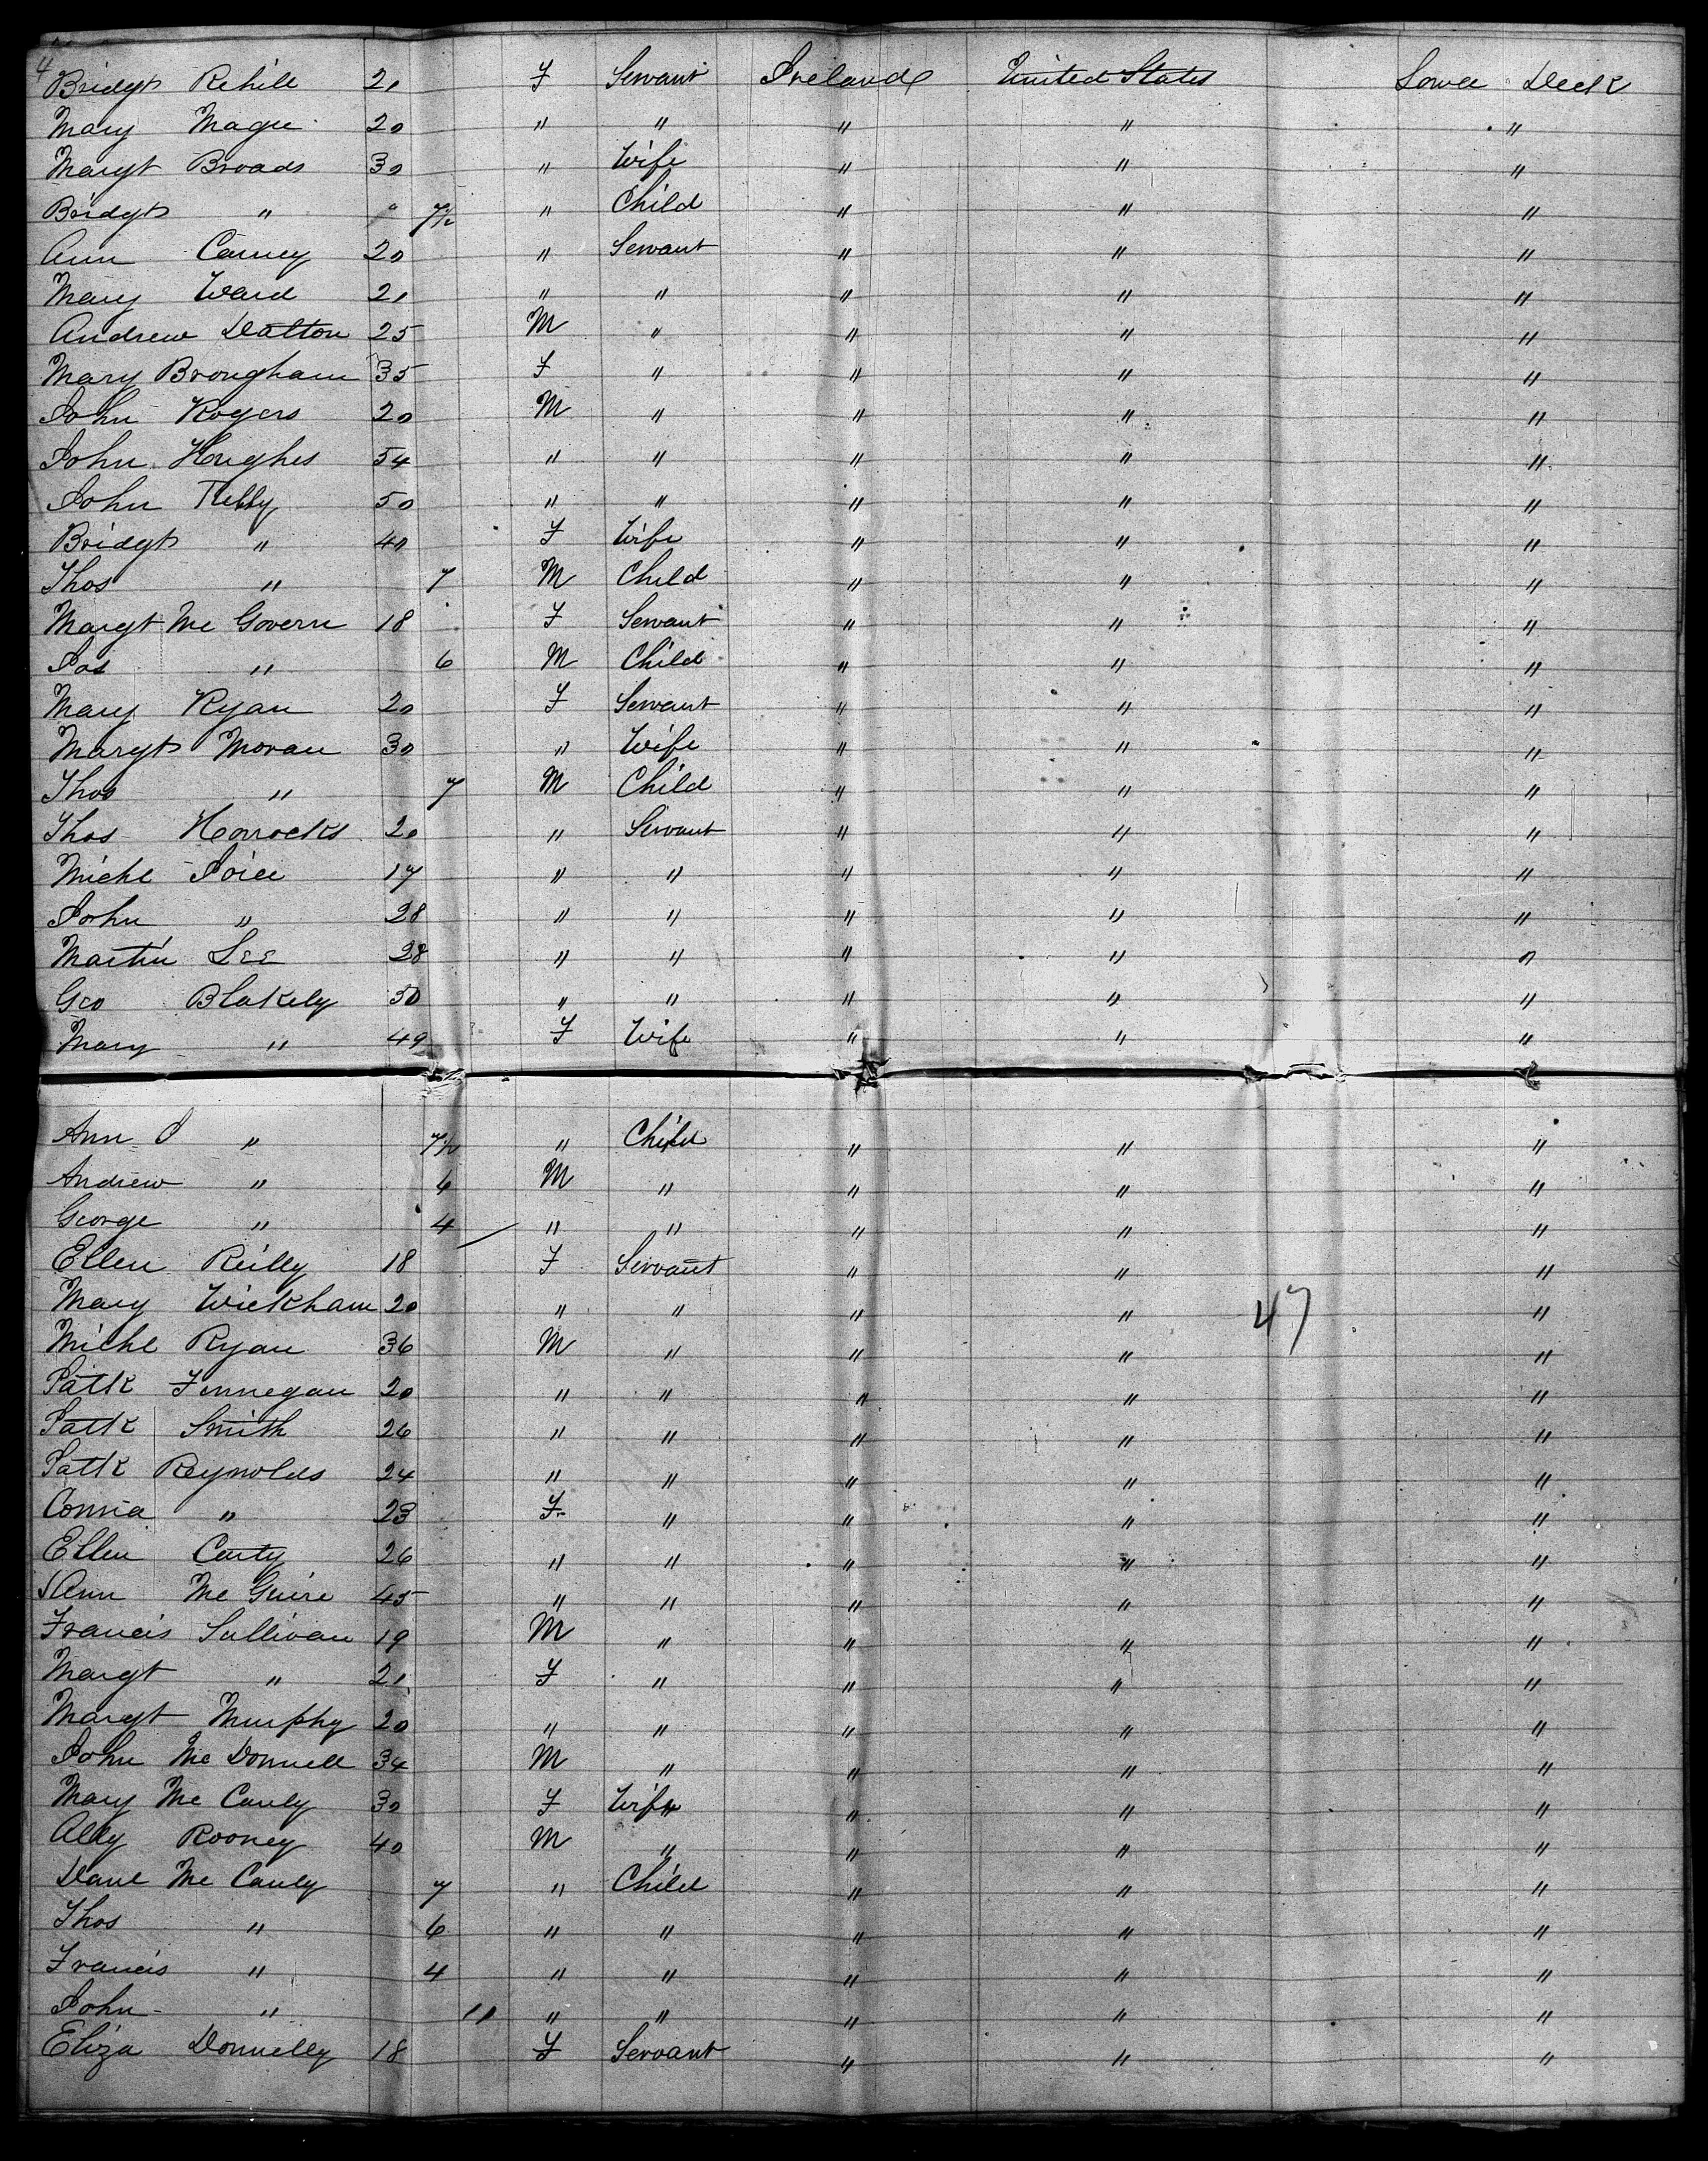 4
Bridgt Rehill 21 F Servant Ireland United States Lower Deck
Mary Magee 20 " " " " "
Margt Broads 30 " Wife " " "
Bridgt " " 7/12 " Child " " "
Ann Carney 20 " Servant " " "
Mary Ward 21 " " " " "
Andrew Dalton 25 M " " " "
Mary Brougham 35 F " " " "
John Rogers 20 M " " " "
John Hughes 54 " " " " "
John Tully 50 " " " " "
Bridgt " 40 F Wife " " "
Thos " 7 M Child " " "
Margt Mc Govern 18 F Servant " " "
Jas " 6 M Child " " "
Mary Ryan 20 F Servant " " "
Margt Moran 30 " Wife " " "
Thos " 7 M Child " " "
Thos Horrocks 20 " Servant " " "
Michl Joice 17 " " " " "
John " 28 " " " " "
Martin Lee 28 " " " " "
Geo Blakely 50 " " " " "
Mary " 49 F Wife " " "
Ann J " 7/12 " Child " " "
Andrew " 6 M " " " "
George " 4 " " " " "
Ellen Reilly 18 F Servant " " "
Mary Wickham 20 " " " " 47 "
Michl Ryan 36 M " " " "
Patk Finnegan 20 " " " " "
Patk Smith 26 " " " " "
Patk Reynolds 24 " " " " "
" 23 F " " " "
Ellen Carty 26 " " " " "
Ann Mc Guire 45 " " " " "
Francis Sullivan 19 M " " " "
Margt " 21 F " " " "
Margt Murphy 20 " " " " "
John Mc Donnell 34 M " " " "
Mary Mc Cauly 30 F Wife " " "
Rooney 40 M " " " "
Danl Mc Cauly 7 " Child " " "
Thos " 6 " " " " "
Francis " 4 " " " " "
John " 11 " " " " "
Eliza Donnelly 18 F Servant " " "